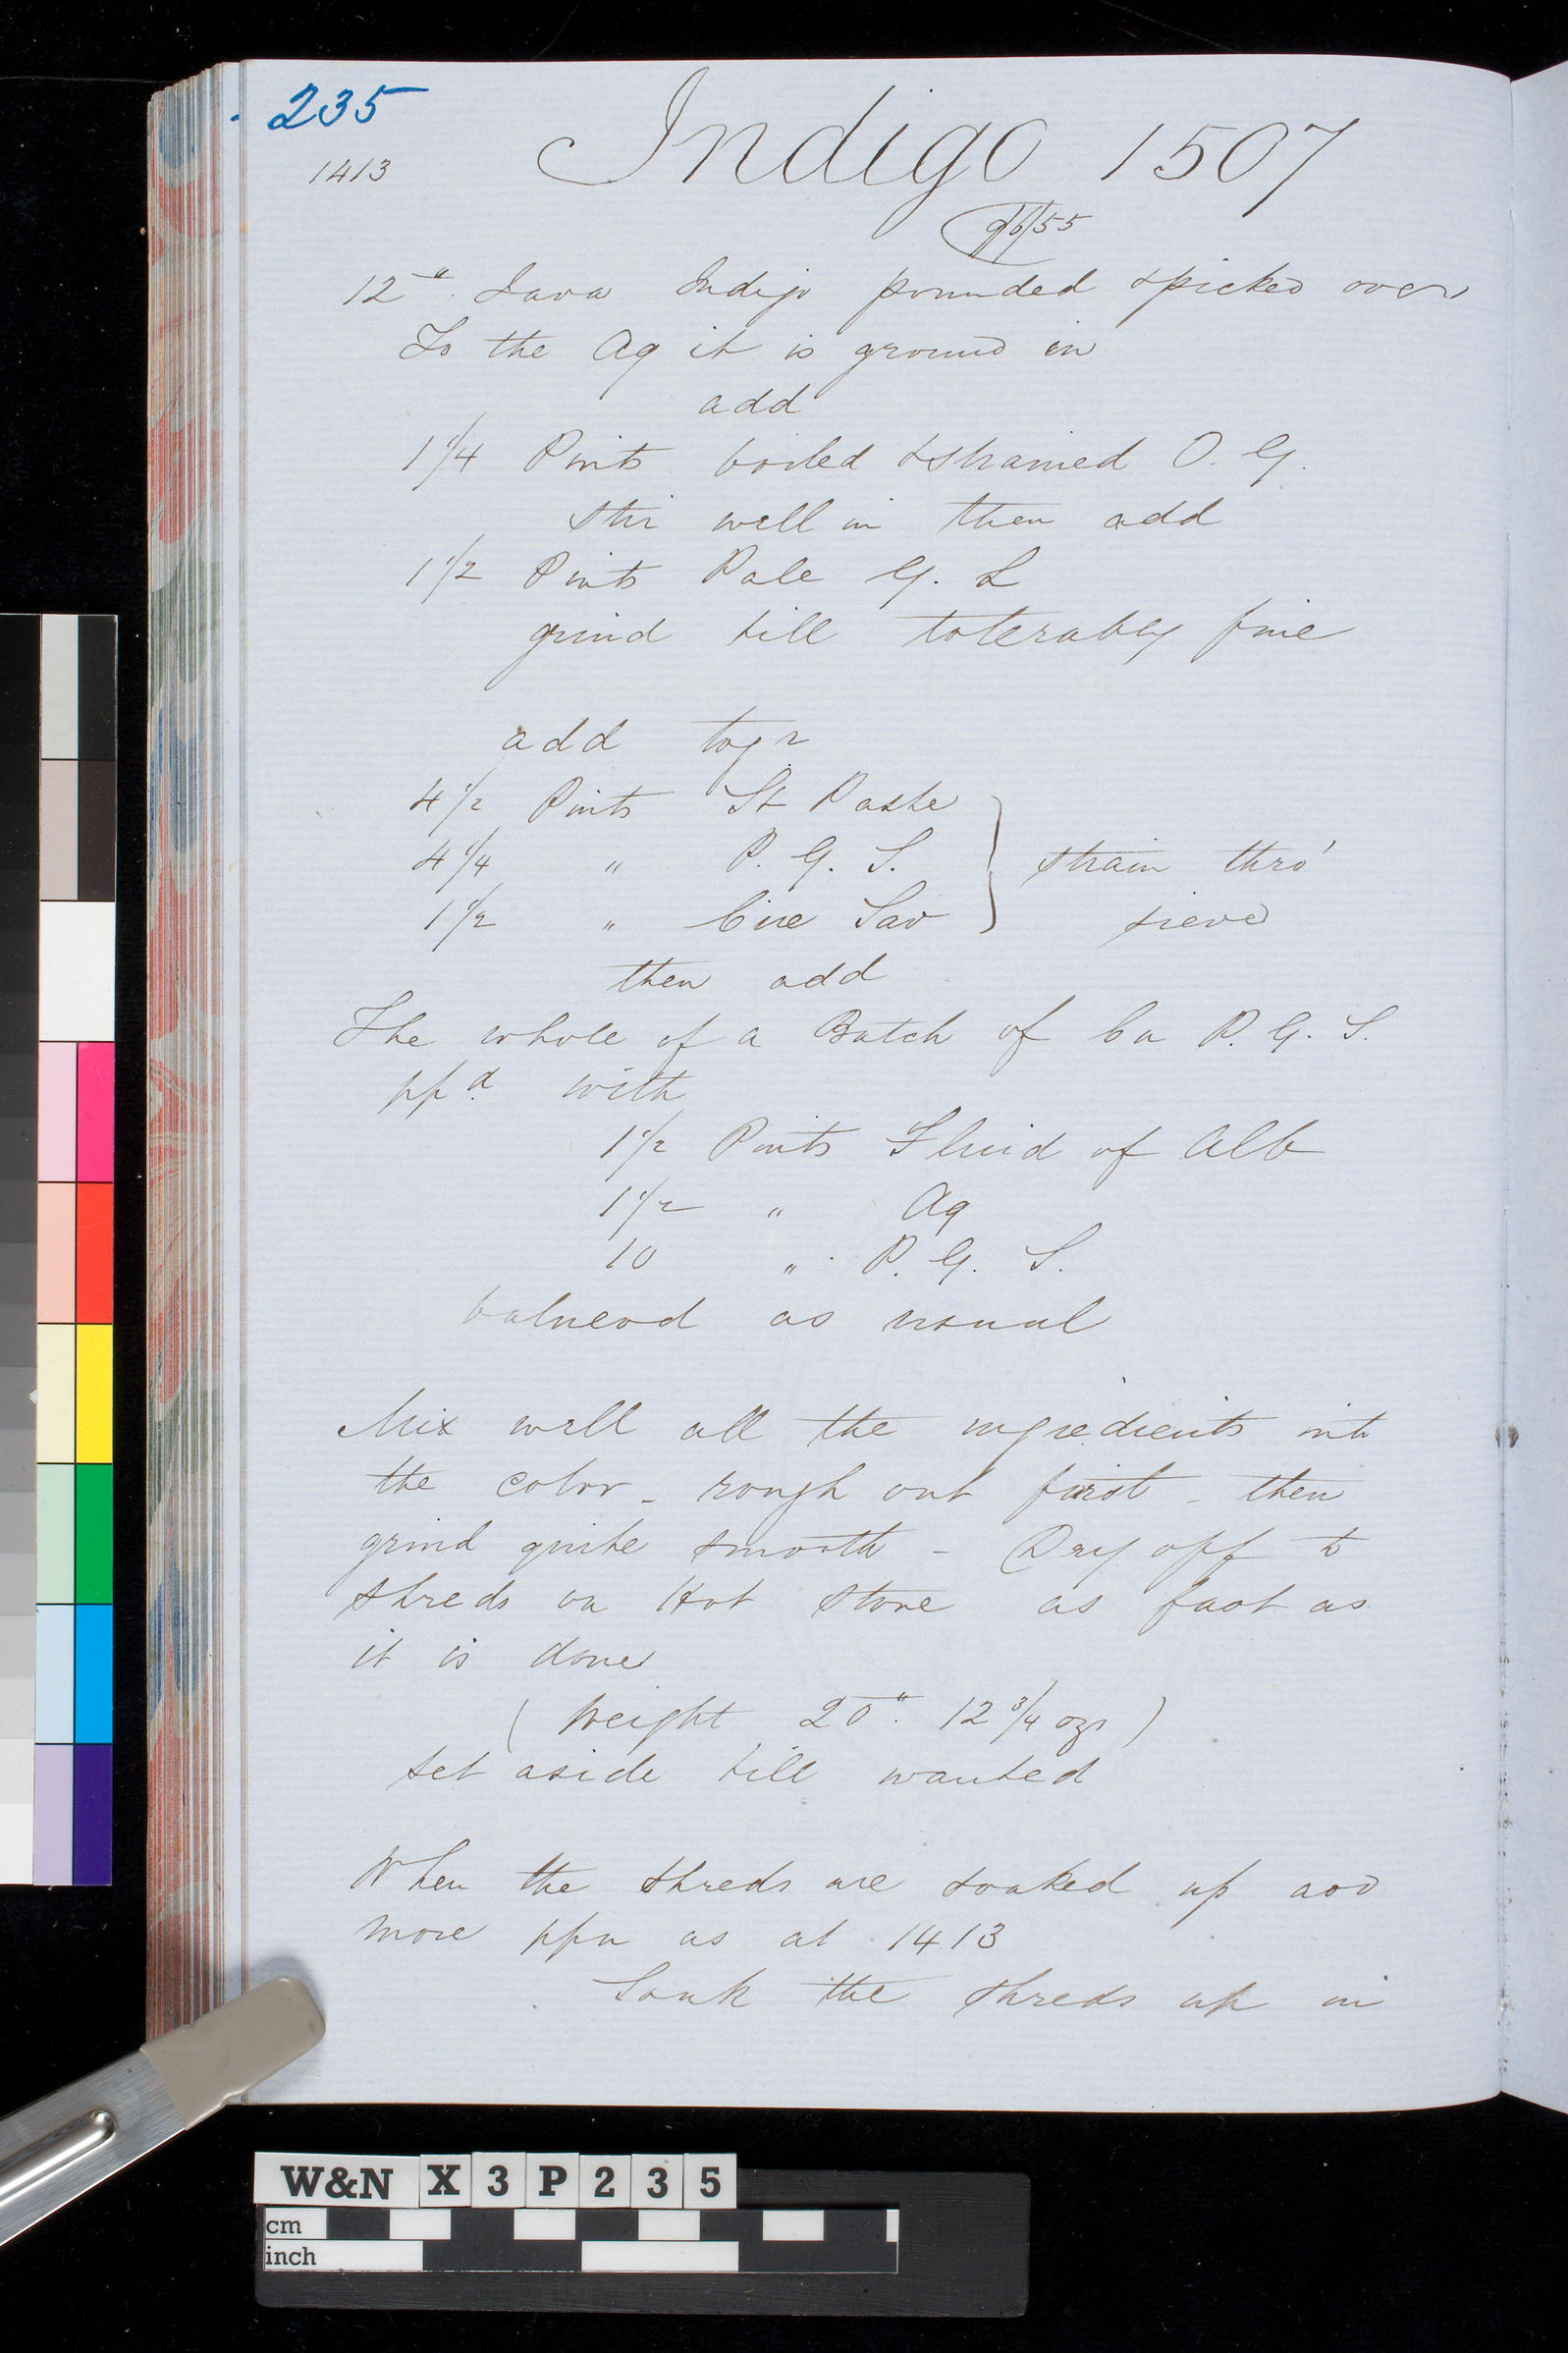 235
1413
Indigo 1507
12" Java Indigo pounded & picked over
To the Aq it is ground in
add
1 1/4 Pints boiled & strained O. G.
stir well in then add
1 1/2 Pints Pale G. L
grind till tolerably fine
add togr
4 1/2 Pints St Paste
4 1/4 " P. G. S. } strain thro'
1 1/2 " Cire Sav sieve
then add
The whole of a Batch of Ca P. G. S.
ppd with
1 1/2 Pints Fluid of Alb
1 1/2 " Aq
10 " P. G. S.
balnead as usual
Mix well all the ingredients into
the color - rough out first - then
grind quite smooth - Dry off to
shreds on Hot stone as fast as
it is done
( Weight 20" 12 3/4 ozs )
set aside till wanted
When the shreds are soaked up add
more ppn as at 1413
Soak the shreds up in
W&N X 3 P 2 3 5
cm
inch